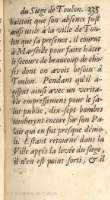 du Siege de Toulon. 335
voyoit que son absence fust
aussi utile à la ville de Tou-
lon que sa presence, il courut
à Marseille pour faire hâter
le secours de beaucoup de cho-
ses dont on avoit besoin à
Toulon. Pendant qu'il a-
gissoit ainsi avec un verita-
ble empressement pour le sa-
lut public, dix-sept bombes
tomberent encore sur son Pa-
lais qui en fut presque démo-
li. Estant retourné dans la
Ville aprés la levée du siege,
il n'en est point sorti, & il